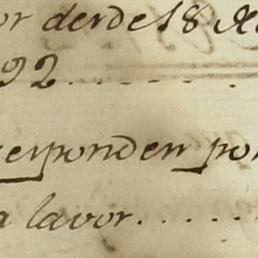 or desde 18 de
92........
responden por
a lavor......